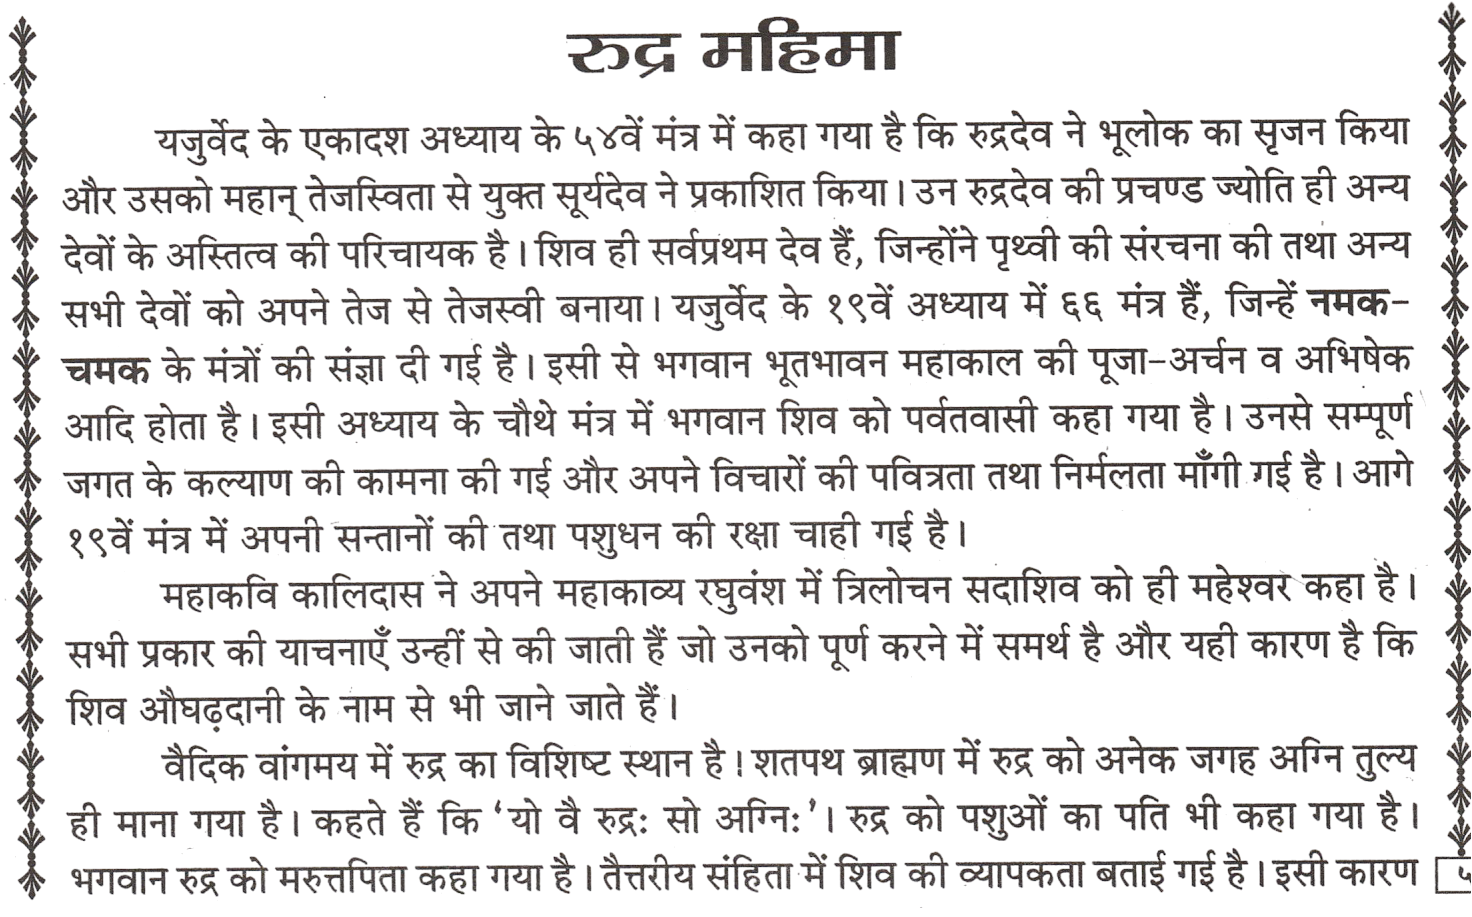 रुद्र महिमा
यजुर्वेद के एकादश अध्याय के ५४वें मंत्र में कहा गया है कि रुद्रदेव ने भूलोक का सृजन किया
और उसको महान् तेजस्विता से युक्त सूर्यदेव ने प्रकाशित किया। उन रुद्रदेव की प्रचण्ड ज्योति ही अन्य
देवों के अस्तित्व की परिचायक है। शिव ही सर्वप्रथम देव हैं, जिन्होंने पृथ्वी की संरचना की तथा अन्य
सभी देवों को अपने तेज से तेजस्वी बनाया। यजुर्वेद के १९वें अध्याय में ६६ मंत्र हैं, जिन्हें नमक-
चमक के मंत्रों की संज्ञा दी गई है। इसी से भगवान भूतभावन महाकाल की पूजा-अर्चन व अभिषेक
आदि होता है। इसी अध्याय के चौथे मंत्र में भगवान शिव को पर्वतवासी कहा गया है। उनसे सम्पूर्ण
जगत के कल्याण की कामना की गई और अपने विचारों की पवित्रता तथा निर्मलता माँगी गई है। आगे
१९वें मंत्र में अपनी सन्तानों की तथा पशुधन की रक्षा चाही गई है।
महाकवि कालिदास ने अपने महाकाव्य रघुवंश में त्रिलोचन सदाशिव को ही महेश्वर कहा है।
सभी प्रकार की याचनाएँ उन्हीं से की जाती हैं जो उनको पूर्ण करने में समर्थ है और यही कारण है कि
शिव औघढ़दानी के नाम से भी जाने जाते हैं।
वैदिक वांगमय में रुद्र का विशिष्ट स्थान है। शतपथ ब्राह्मण में रुद्र को अनेक जगह अग्नि तुल्य
ही माना गया है। कहते हैं कि ‘यो वै रुद्रः सो अग्निः’। रुद्र को पशुओं का पति भी कहा गया है।
भगवान रुद्र को मरुत्तपिता कहा गया है। तैत्तरीय संहिता में शिव की व्यापकता बताई गई है। इसी कारण
५